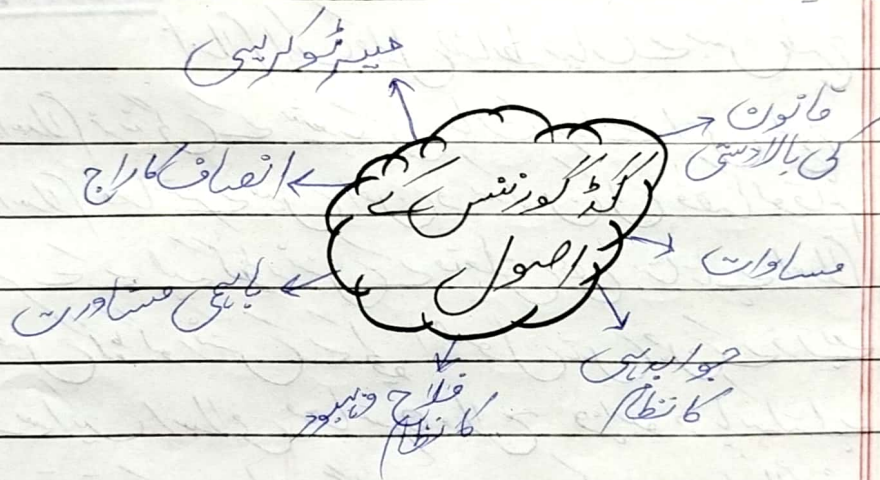 میرٹوکریسی
قانون
کی بالادستی
انصاف کا راج
گڈ گورننس کے
اصول
مساوات
باہمی مشاورت
جوابدہی
کا نظام
فلاح وبہبود
کا نظام